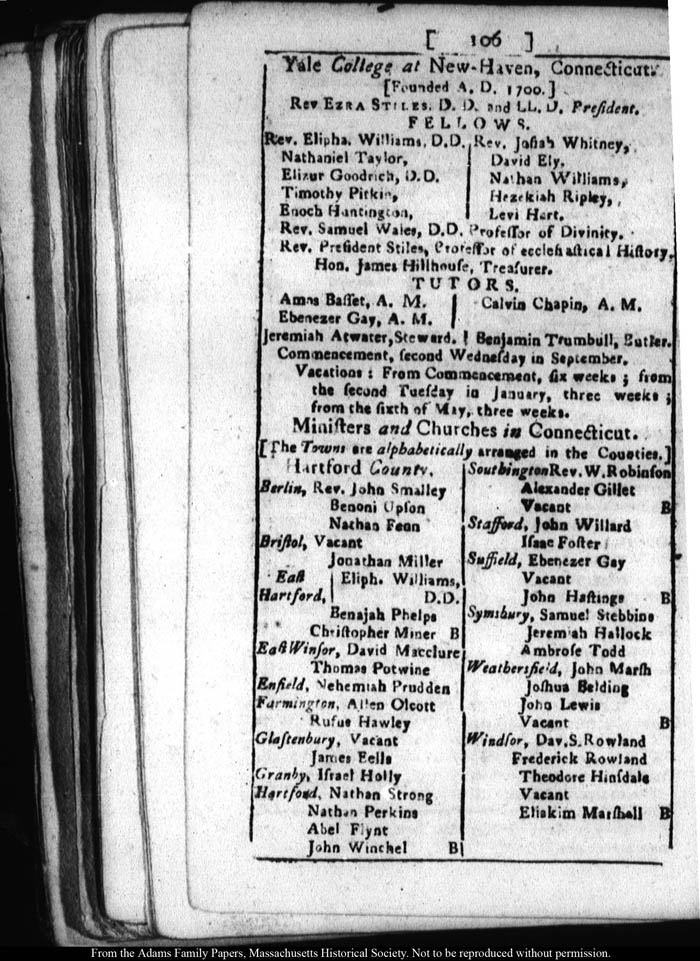 [ 106 ]
Yale College at New-Haven, Connecticut.
[Founded A. D. 1700.]
Rev EZRA STILES. D. D. and LL. D. Preſident.
FELLOWS.
Rev. Elipha. Williams, D.D.
Nathaniel Taylor,
Elizur Goodrich, D.D.
Timothy Pitkin,
Enoch Huntington,
Rev. Joſiah Whitney,
David Ely,
Nathan Williams,
Hezekiah Ripley,
Levi Hart.
Rev. Samuel Wales, D.D. Profeſſor of Divinity.
Rev. Preſident Stiles, Profeſſor of eccleſiaſtical Hiſtory.
Hon. James Hillhouſe, Treaſurer.
TUTORS.
Amos Baſſet, A. M.
Ebenezer Gay, A. M.
Calvin Chapin, A. M.
Jeremiah Atwater, Steward. | Benjamin Trumbull, Butler.
Commencement, ſecond Wedneſday in September.
Vacations : From Commencement, ſix weeks ; from
the ſecond Tueſday in January, three weeks ;
from the ſixth of May, three weeks.
Miniſters and Churches in Connecticut.
[The Towns are alphabetically arranged in the Counties.]
Hartford County.
Berlin, Rev. John Smalley
Benoni Upſon
Nathan Fenn
Briſtol, Vacant
Jonathan Miller
Eaſt | Eliph. Williams,
Hartford, | D.D.
Benajah Phelps
Chriſtopher Miner B
Eaſt Winſor, David Macclure
Thomas Potwine
Enfield, Nehemiah Prudden
Farmington, Allen Olcott
Rufus Hawley
Glaſtenbury, Vacant
James Eells
Granby, Iſrael Holly
Hartford, Nathan Strong
Nathan Perkins
Abel Flynt
John Winchel B
Southington Rev. W. Robinſon
Alexander Gillet
Vacant B
Stafford, John Willard
Iſaac Foſter
Suffield, Ebenezer Gay
Vacant
John Haſtings B
Symsbury, Samuel Stebbins
Jeremiah Hallock
Ambroſe Todd
Weathersfield, John Marſh
Joſhua Belding
John Lewis
Vacant B
Windſor, Dav. S. Rowland
Frederick Rowland
Theodore Hinſdale
Vacant
Eliakim Marſhall B
From the Adams Family Papers, Massachusetts Historical Society. Not to be reproduced without permission.